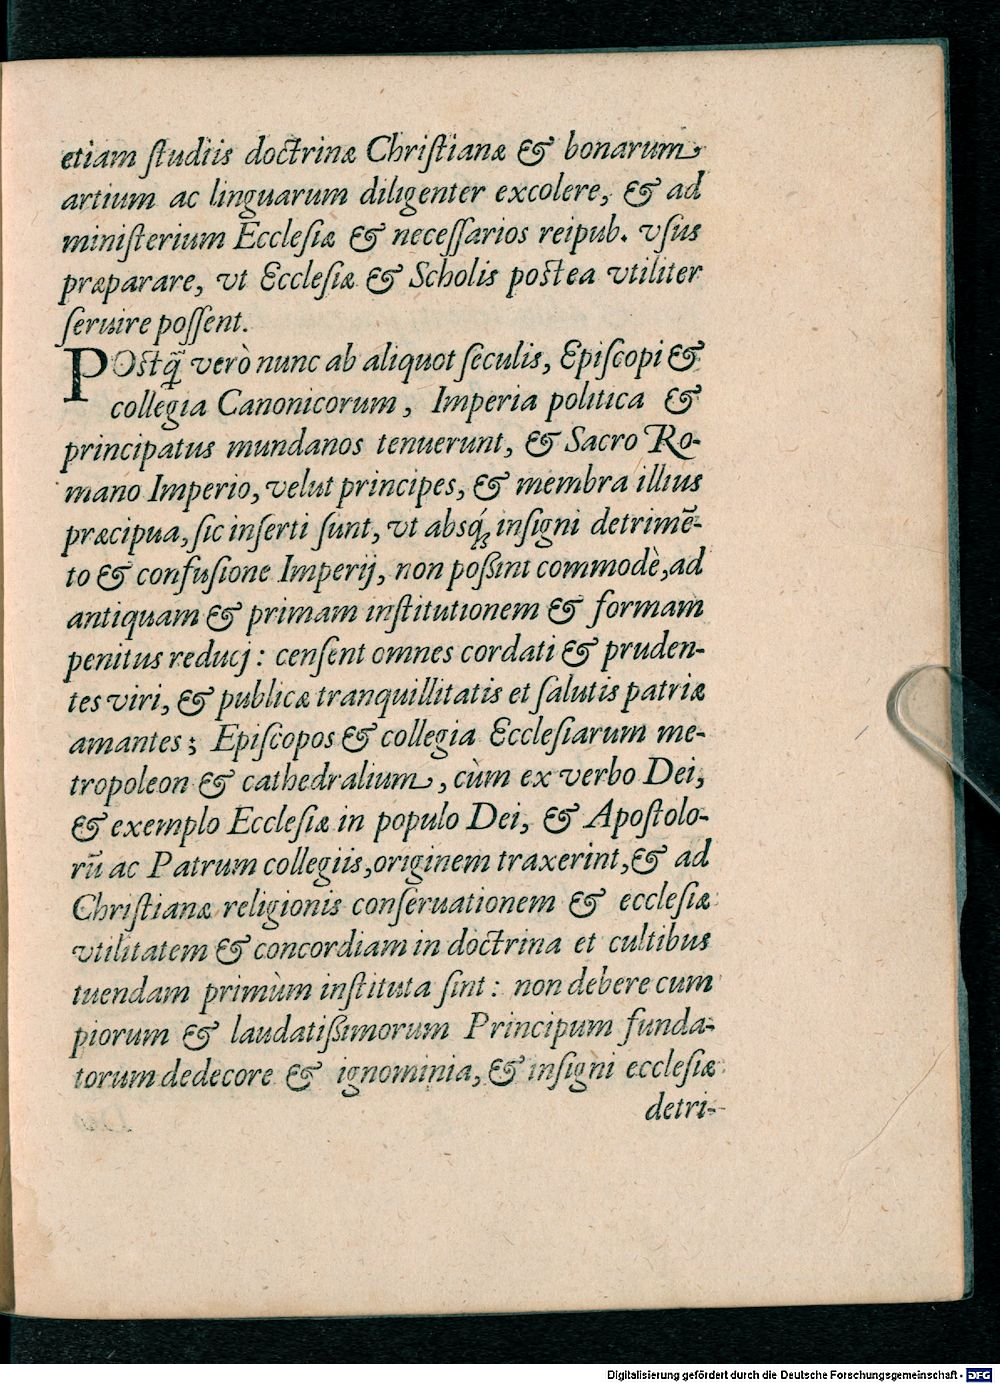 etiam ſtudiis doctrinæ Chriſtianæ & bonarum
artium ac linguarum diligenter excolere, & ad
miniſterium Eccleſiæ & neceſſarios reipub. vſus
præparare, vt Eccleſiæ & Scholis postea vtiliter
ſeruire poſſent.
POstq̃ verò nunc ab aliquot ſeculis, Epiſcopi &
collegia Canonicorum, Imperia politica &
principatus mundanos tenuerunt, & Sacro Ro-
mano Imperio, velut principes, & membra illius
præcipua, ſic inſerti ſunt, vt absq́; inſigni detrimē-
to & confuſione Imperij, non poßint commodè, ad
antiquam & primam inſtitutionem & formam
penitus reducj: cenſent omnes cordati & pruden-
tes viri, & publicæ tranquillitatis et ſalutis patriæ
amantes; Epiſcopos & collegia Eccleſiarum me-
tropoleon & cathedralium, cùm ex verbo Dei,
& exemplo Eccleſiæ in populo Dei, & Apoſtolo-
rū ac Patrum collegiis, originem traxerint, & ad
Chriſtianæ religionis conſeruationem & eccleſiæ
vtilitatem & concordiam in doctrina et cultibus
tuendam primùm inſtituta ſint: non debere cum
piorum & laudatißimorum Principum funda-
torum dedecore & ignominia, & inſigni eccleſiæ
detri-
Digitalisierung gefördert durch die Deutsche Forschungsgemeinschaft - DFG